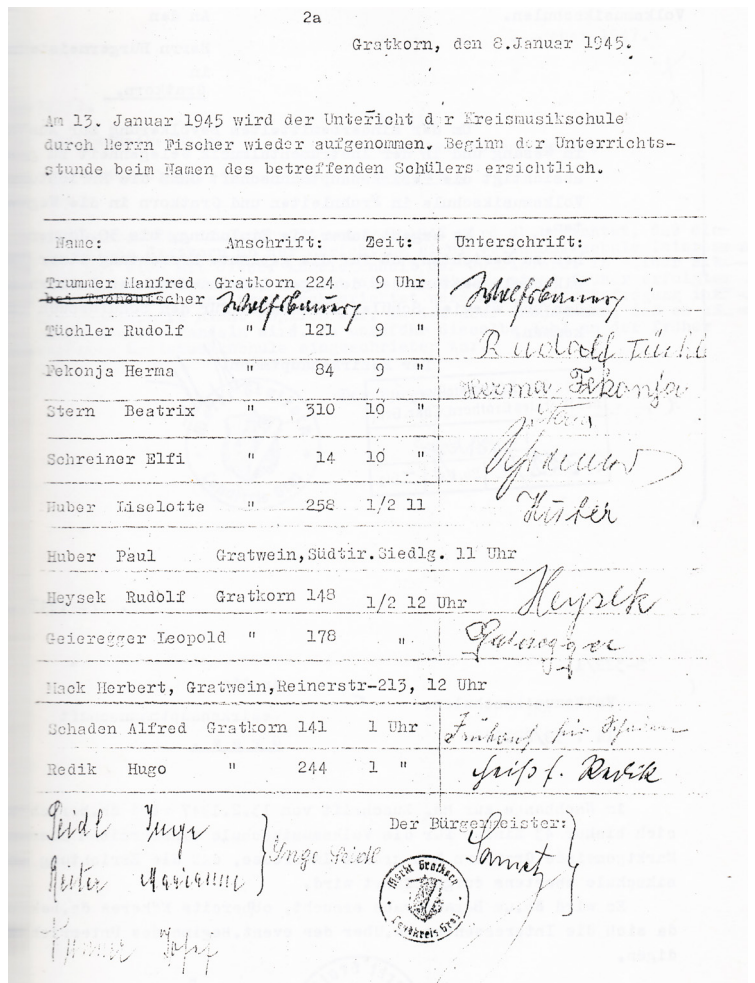 2a
Gratkorn, den 8.Januar 1945.
Am 13. Januar 1945 wird der Unterricht d r Kreismusikschule
durch Herrn Fischer wieder aufgenommen. Beginn der Unterrichts-
stunde beim Namen des betreffenden Schülers ersichtlich.
Name: Anschrift: Zeit: Unterschrift:
Trummer Manfred Gratkorn 224 9 Uhr Wolfsbauer
bei Wolfsbauer
Tüchler Rudolf " 121 9 " Rudolf Tüchl
Fekonja Herma " 84 9 " Herma Fekonja
Stern Beatrix " 310 10 " Stern
Schreiner Elfi " 14 10 " Schreiner
Huber Liselotte " 258 1/2 11 Huber
Huber Paul Gratwein,Südtir.Siedlg. 11 Uhr
Heysek Rudolf Gratkorn 148 1/2 12 Uhr Heysek
Geieregger Leopold " 178 " Geieregger
Mack Herbert, Gratwein,Reinerstr-213, 12 Uhr
Schaden Alfred Gratkorn 141 1 Uhr für Schaden
Redik Hugo " 244 1 " f. Redik
Der Bürgermeister:
Seidl Inge
Inge Seidl
Reiter Marianne
Markt Gratkorn
Landkreis Graz
Josef